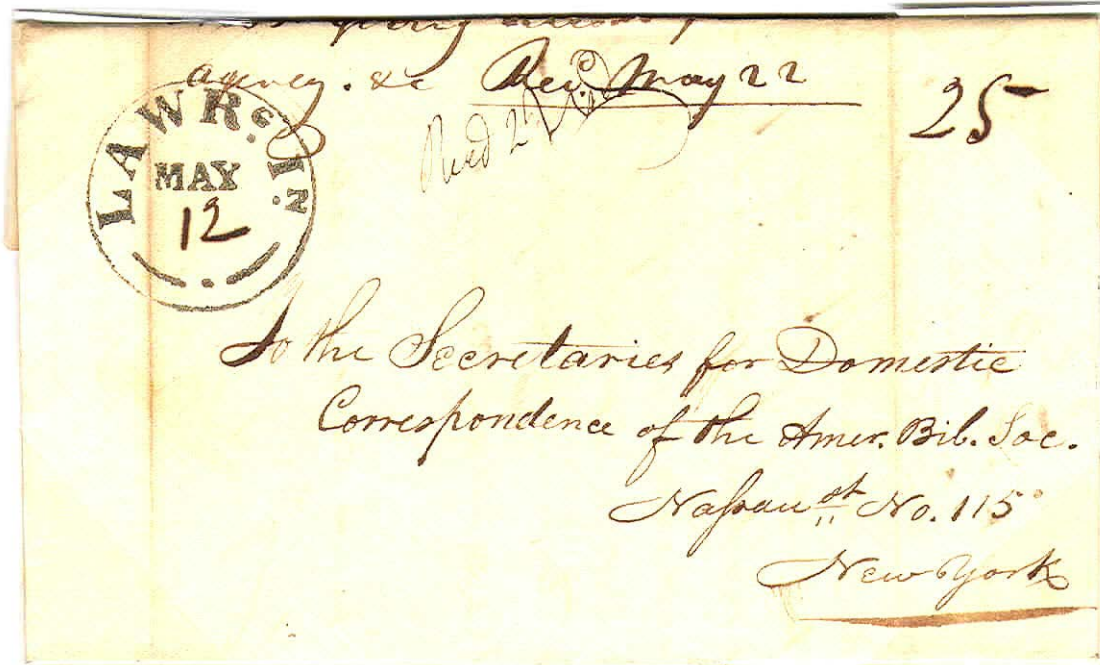 agency. &c Recd. May 22
Recd 2
25
LAWR.G. IN.
MAY
12
To the Secretaries for Domestic
Correspondence of the Amer. Bib. Soc.
Naſsau st No. 115
New York